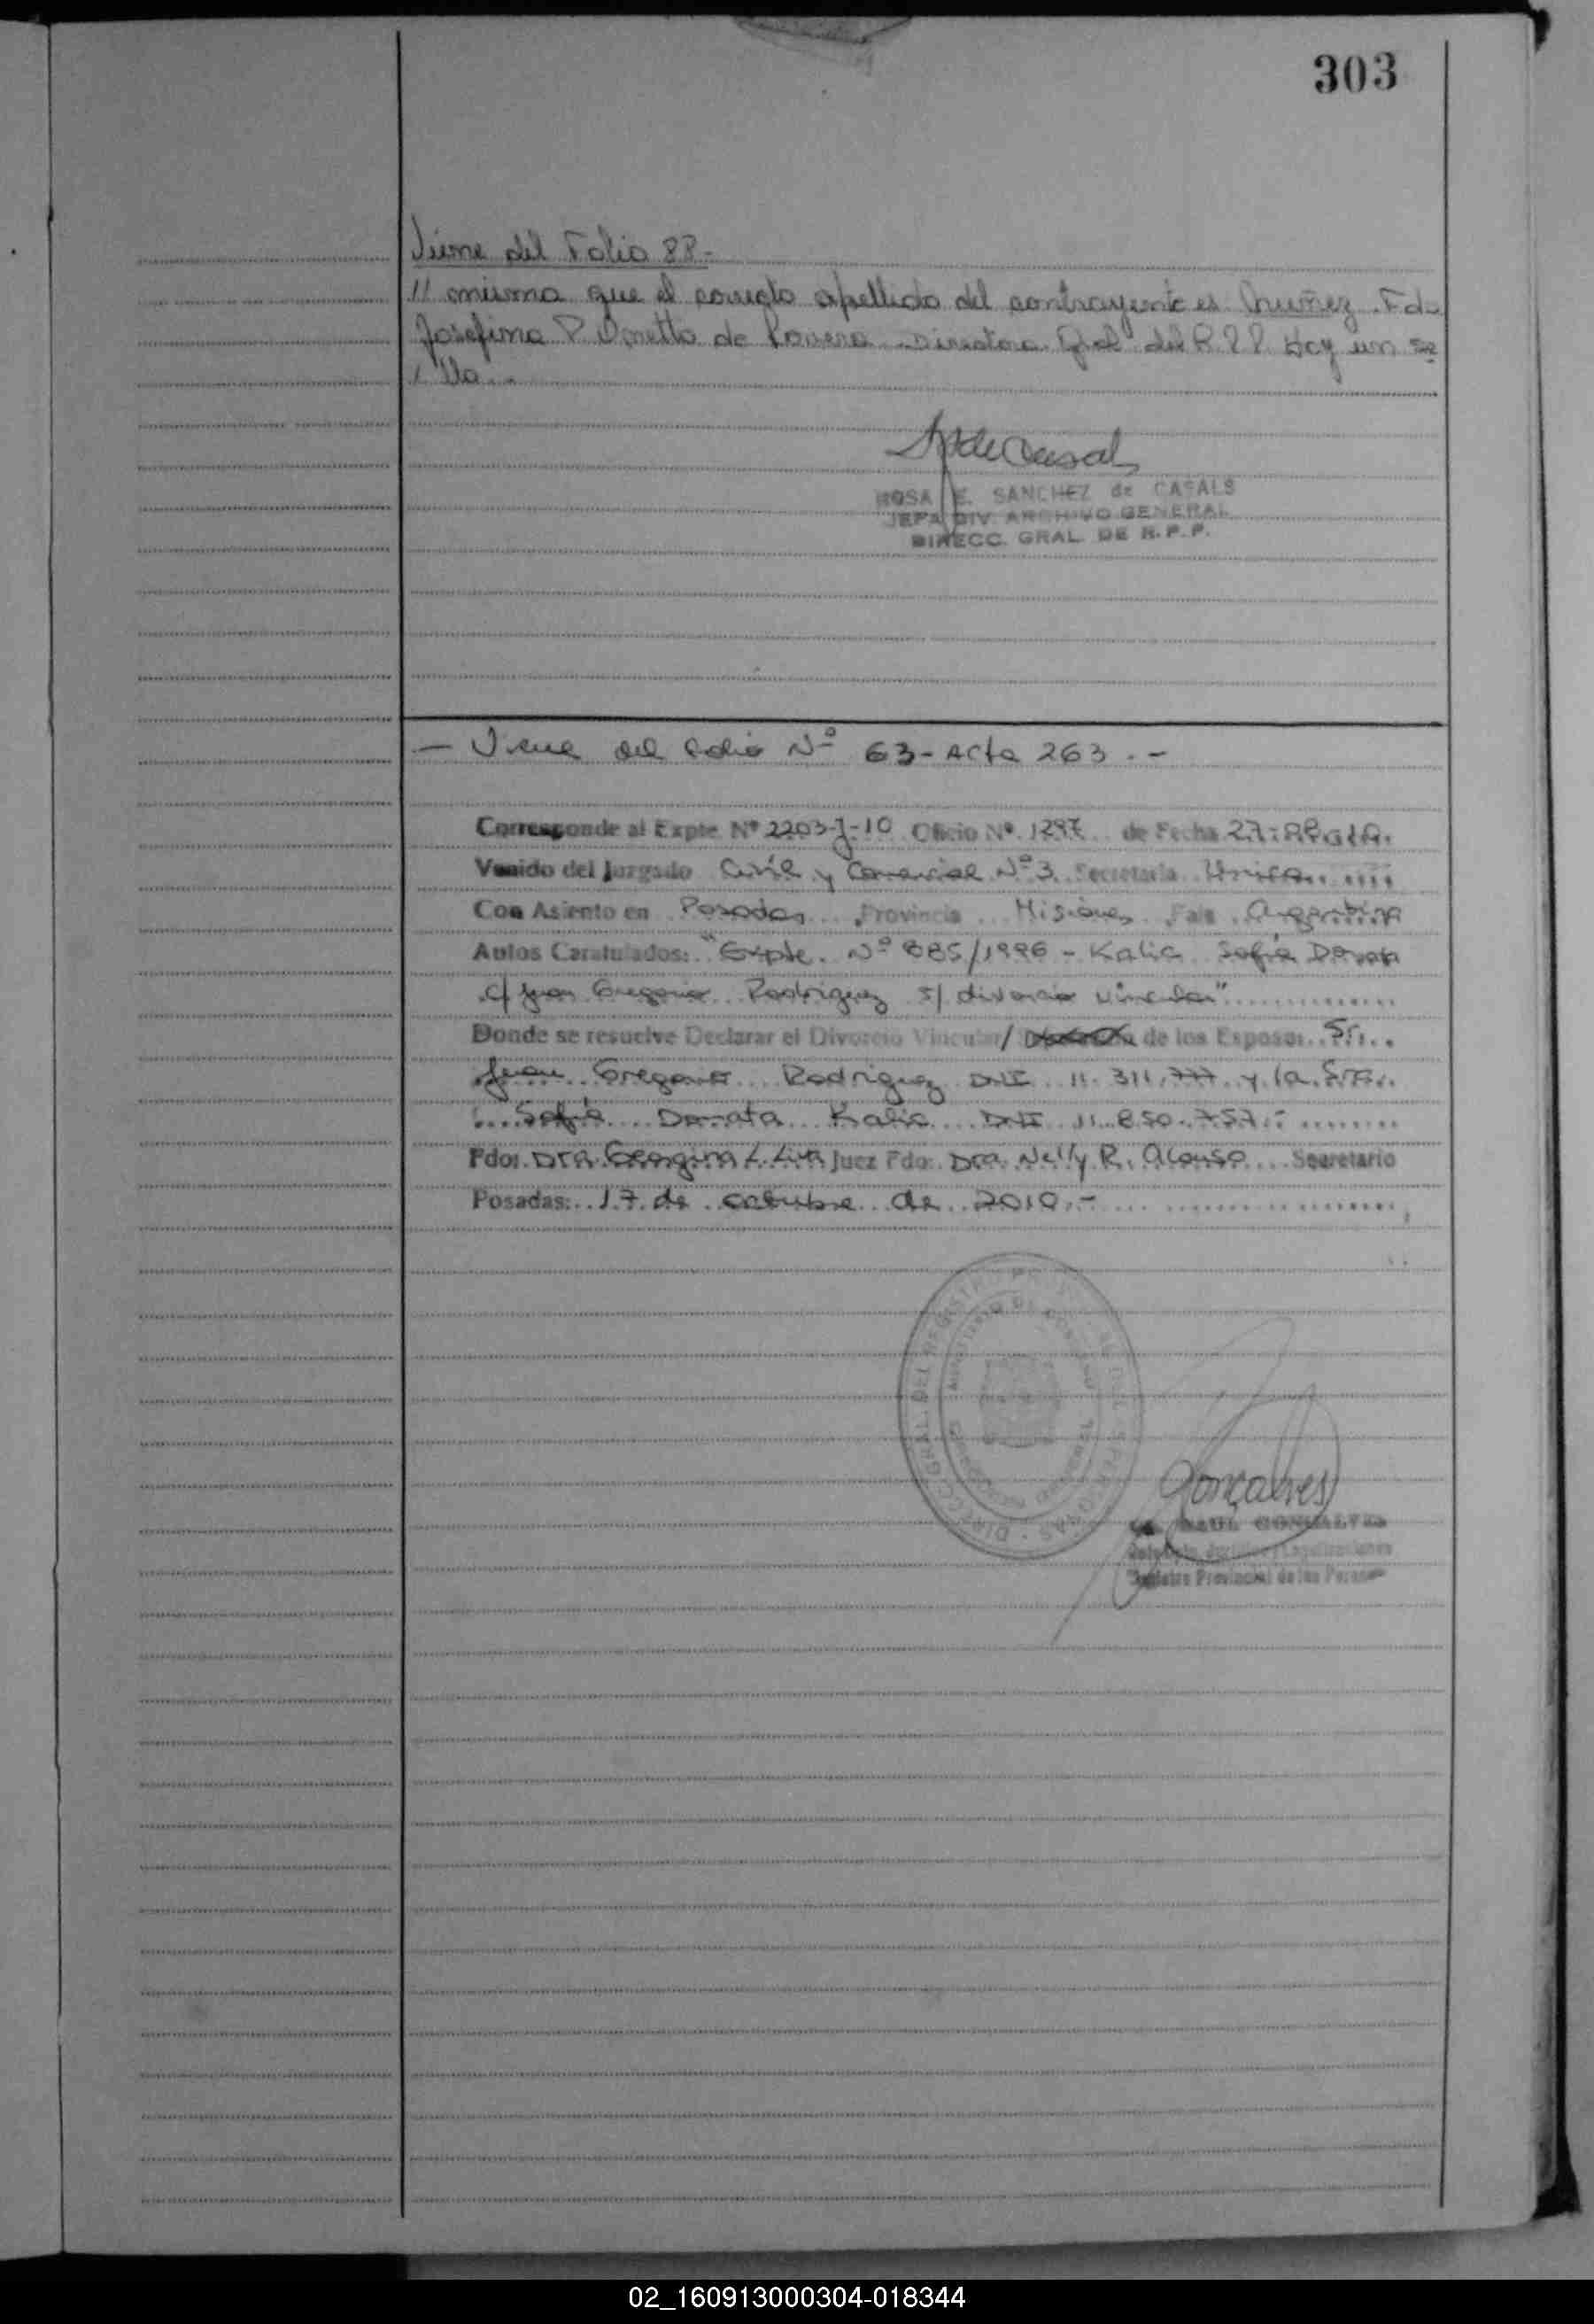 303
Viene del Folio 88.-
// misma que el correcto apellido del contrayente es Nuñez. Fdo
Josefina P. de Directora Gral del R.P.P. Hay un se
llo.-
ROSA E. SANCHEZ de CASALS
JEFA DIV. ARCHIVO GENERAL
DIRECC. GRAL. DE R.P.P.
- Viene del folio Nº 63 - Acta 263.-
Corresponde al Expte. Nº 2203-J-10 Oficio Nº 1297 de Fecha 27
Venido del Juzgado Civil y Comercial Nº 3 Secretaría Unica
Con Asiento en Posadas Provincia Misiones País Argentina
Autos Caratulados: "Expte. Nº 885/1996 - Kalic Sofía Donata
c/ Juan Gregorio Rodriguez s/ divorcio vincular"
Donde se resuelve Declarar el Divorcio Vincular/ de los Esposos Sr.
Juan Gregorio Rodriguez DNI 11.311.777 y la Sra.
Sofía Donata Kalic DNI 11.850.757.-
Fdo: Dra. Georgina L. Juez Fdo: Dra. Nelly R. Alonso Secretario
Posadas: 17 de octubre de 2010.-
Gonçalves
RAUL GONCALVES
Registro Provincial de las Personas
02_160913000304-018344